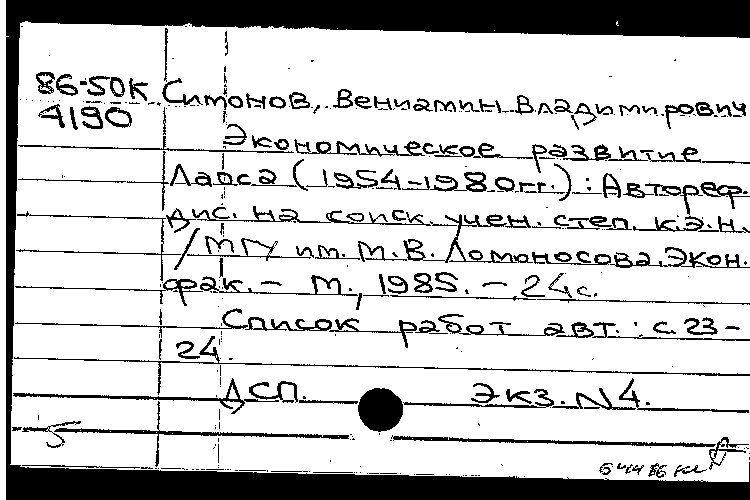 86-50К Симонов, Вениамин Владимирович
4190
Экономическое развитие
Лаоса (1954-1980гг.) : Автореф.
дис. на соиск. учен. степ. к.э.н.
/МГУ им. М.В. Ломоносова. Экон.
фак. - М., 1985. - 24с.
Список работ авт. : с. 23-
24.
ДСП. Экз. N4.
5